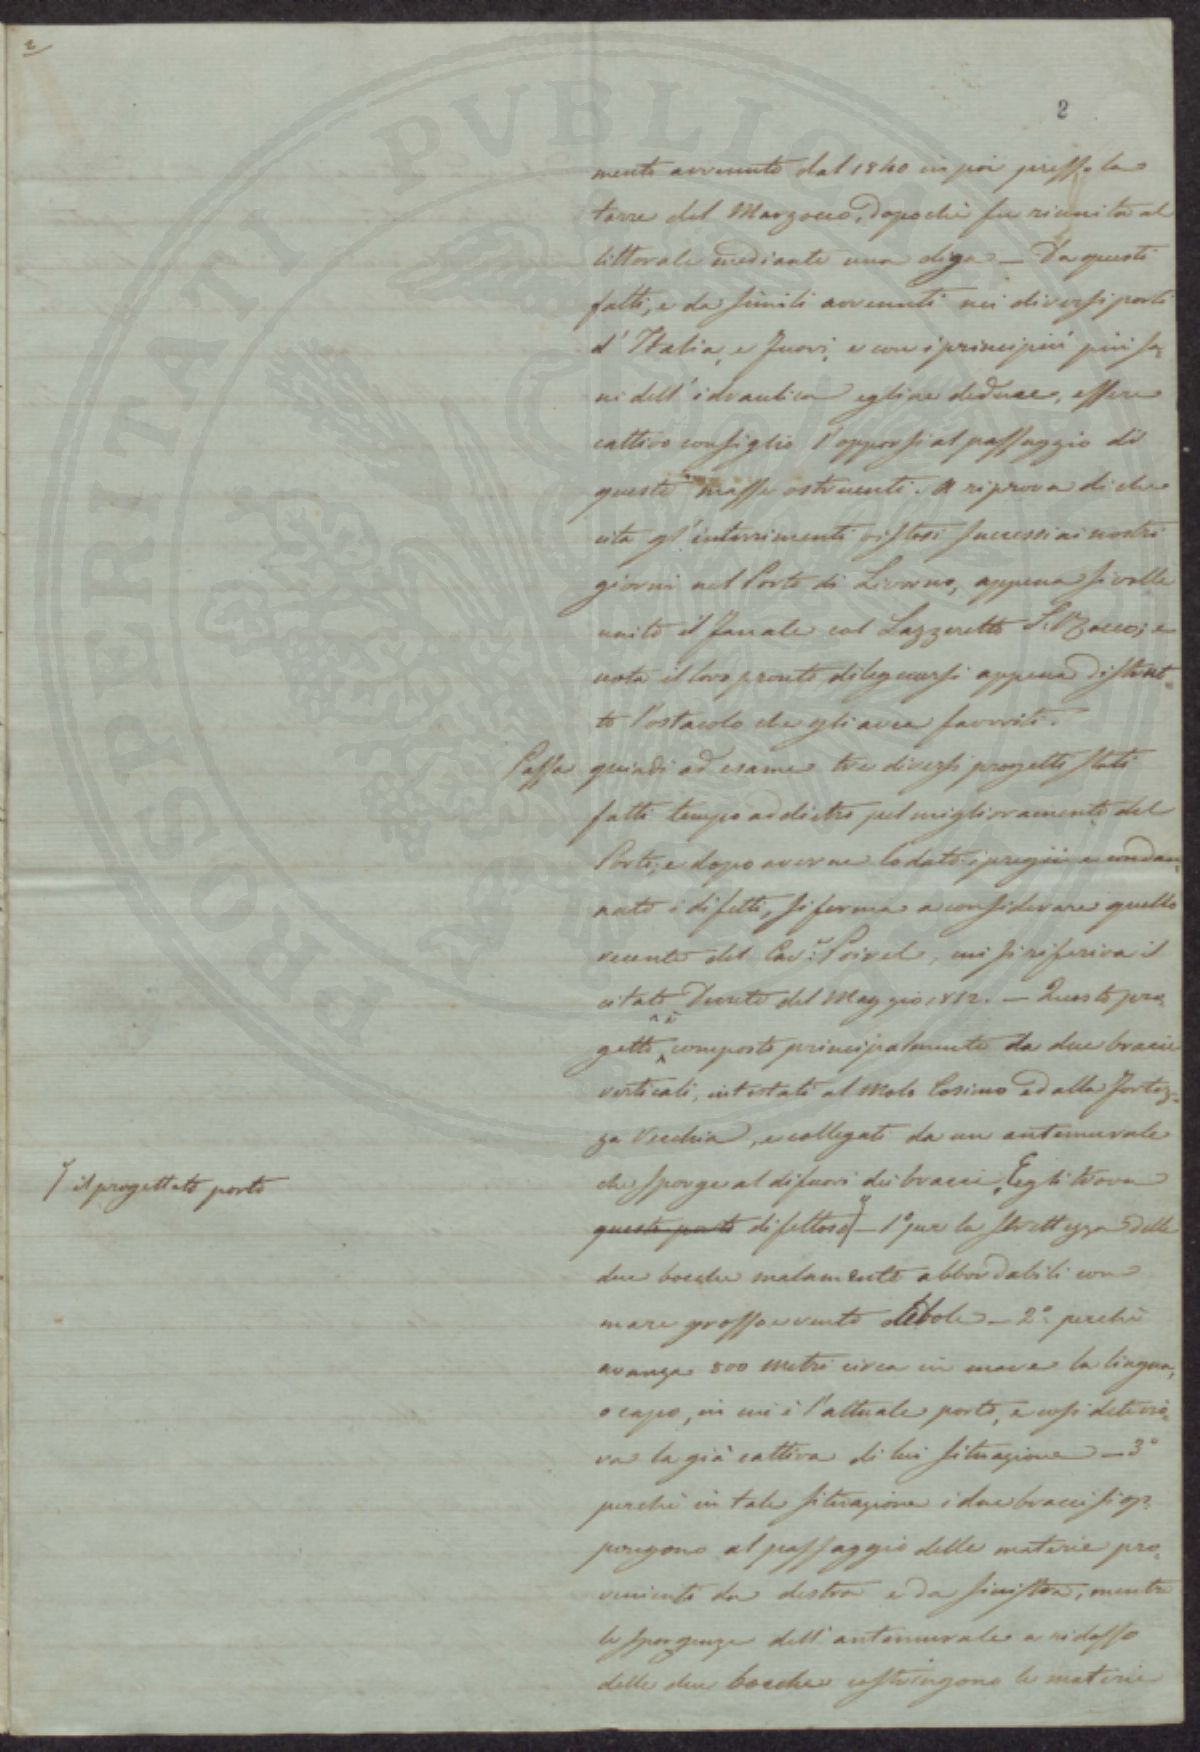 2
2
mento avvenuto dal 1840 in poi presso la
torre del Marzocco, dopochè fu riunita al
littorale mediante una diga — Da questi
fatti, e da simili avvenuti nei diversi porti
d'Italia, e fuori, e con i principii più sa-
ni dell'idraulica egli ne deduce, essere
cattivo consiglio l'opporsi al passaggio di
queste masse ostruenti. A riprova di che
cita gl'interrimenti vistosi successi ai nostri
giorni nel Porto di Livorno, appena si volle
unito il Fanale col Lazzeretto S. Rocco; e
nota il loro pronto dileguarsi appena distrut-
to l'ostacolo che gli avea favoriti.
Passa quindi ad esame tre diversi progetti stati
fatti tempo addietro pel miglioramento del
Porto, e dopo averne lodato i pregii e condan-
nato i difetti, si ferma a considerare quello
recente del Cav.r Poirel, cui si riferiva il
citato Decreto del Maggio 1852. — Questo pro-
getto è composto principalmente da due bracci
verticali, intestati al Molo Cosimo ed alla Fortez-
za Vecchia, e collegati da un antemurale
che sporge al difuori dei bracci. Egli trova
il progettato porto
questo porto difettoso — 1° per la strettezza delle
due bocche malamente abbordabili con
mare grosso e vento debole — 2° perchè
avanza 800 metri circa in mare la lingua,
o capo, in cui è l'attuale porto, e così deterio-
ra la già cattiva di lui situazione — 3°
perchè in tale situazione i due bracci si op-
pongono al passaggio delle materie pro-
venienti da destra e da sinistra, mentre
le sporgenze dell'antemurale a ridosso
delle due bocche costringono le materie
PROSPERITATI PVBLICAE